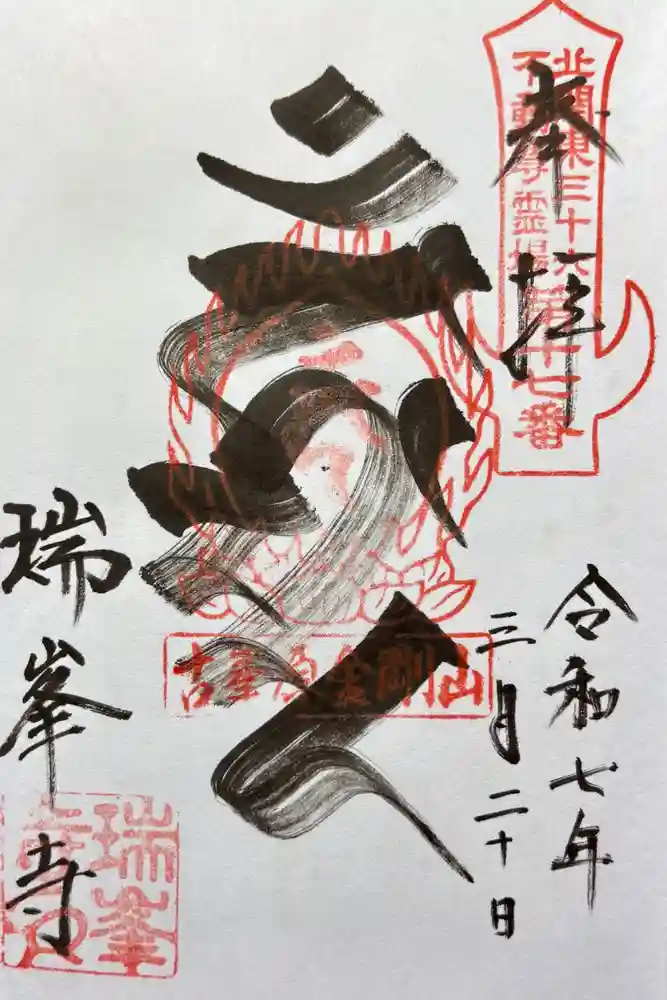 奉拝
北関東三十六
不動尊霊場第十七番
令和七年
三月二十日
金剛山
瑞峯寺
瑞峯
寺印